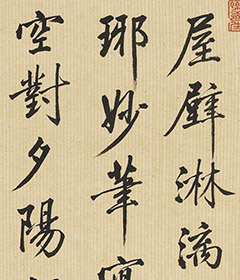 屋壁淋漓
琊妙筆寫
空對夕陽